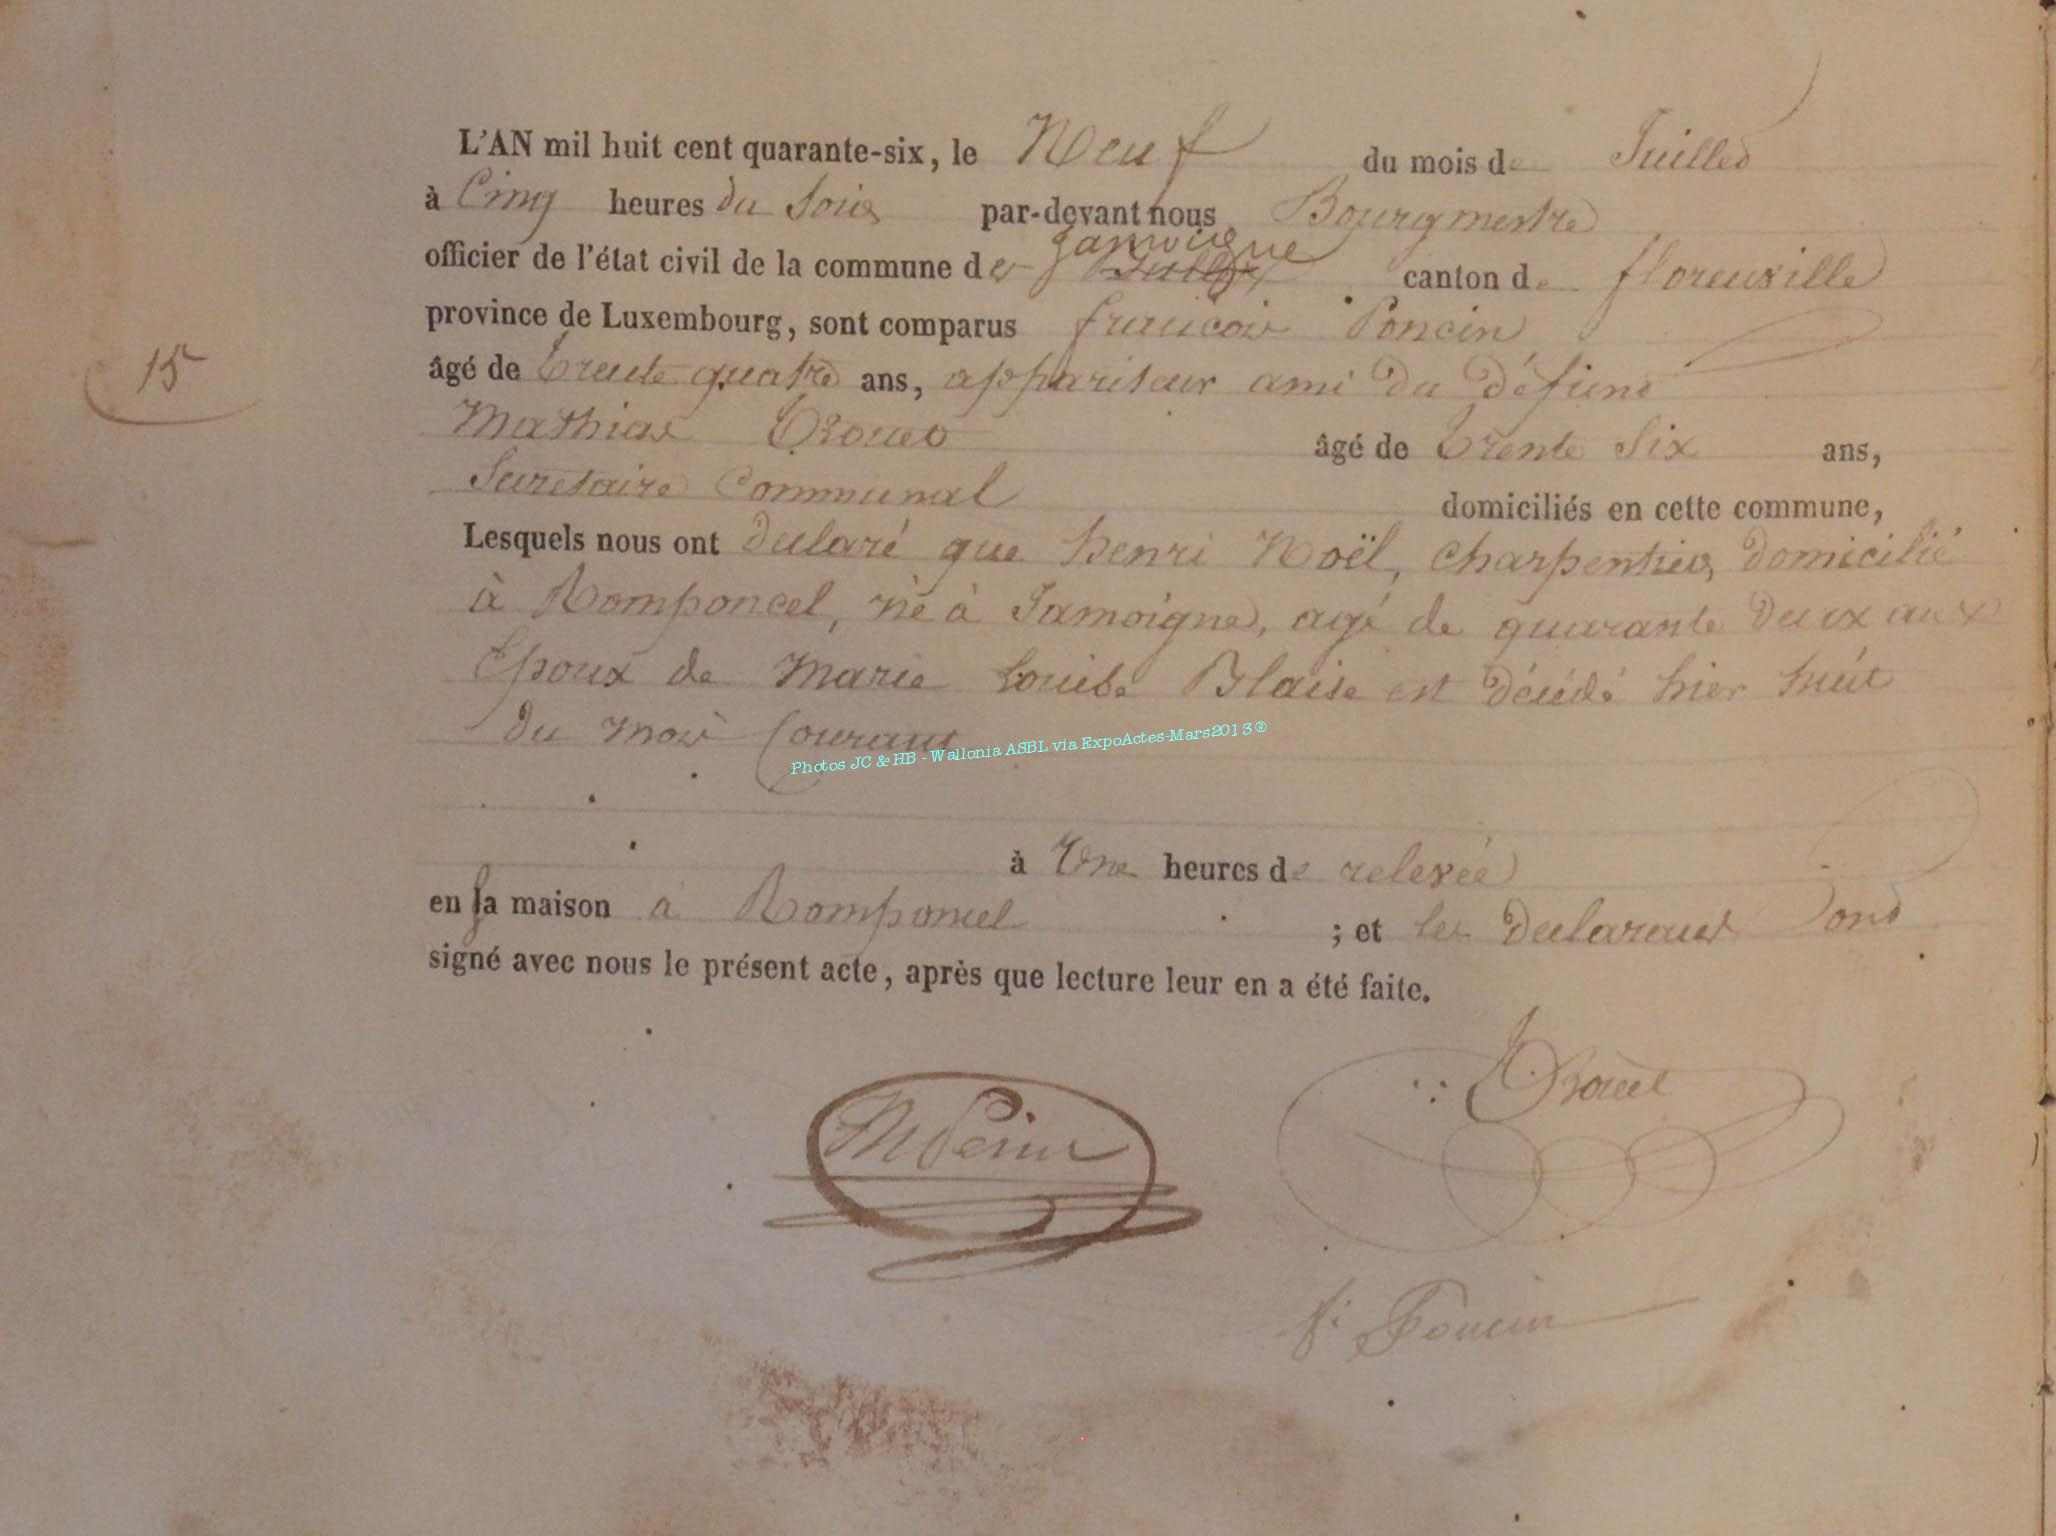 L'AN mil huit cent quarante-six, le Neuf du mois de Juillet
à Cinq heures du Soir par-devant nous Bourgmestre
officier de l'état civil de la commune de Jamoigne canton de florenville
province de Luxembourg, sont comparus françois Poncin
âgé de trente quatre ans, appariteur ami du défunt
15
Mathias Crouet âgé de trente Six ans,
Secretaire Communal domiciliés en cette commune,
Lesquels nous ont declaré que henri Noël, Charpentier, domicilié
à Romponcel, né à Jamoigne, agé de quarante deux ans
Epoux de Marie Louise Blaise est décédé hier huit
du mois Courant
Photos JC & HB - Wallonia ASBL via ExpoActes-Mars2013®
à Une heures de relevée
en sa maison à Romponcel ; et les declarants ont
signé avec nous le présent acte, après que lecture leur en a été faite.
Crouet
f: Poncin